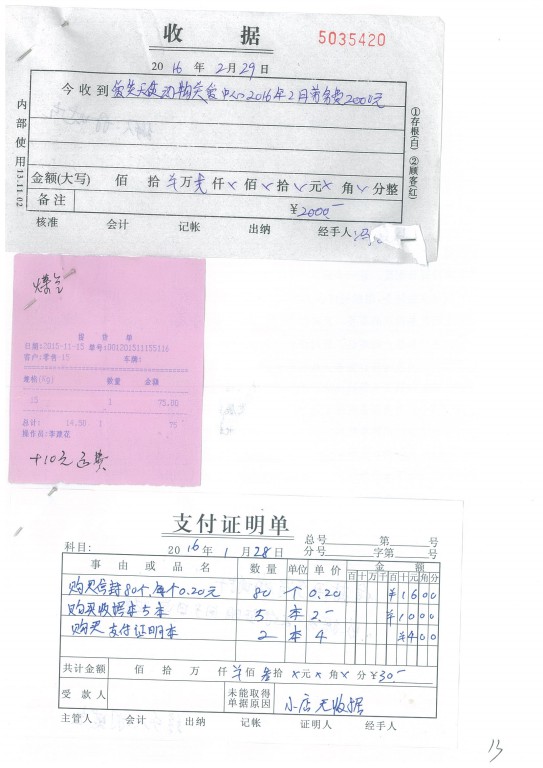 收 据
5035420
2016年2月29日
今收到 爱关动物关爱中心2016年2月劳务费2000元
内部使用13.11.02
①存根(白) ②顾客(红)
金额(大写) 佰 拾 万 仟 佰 拾 元 角 分整
备注 ¥2000.-
核准 会计 记帐 出纳 经手人
煤气
提货单
日期:2015-11-15 单号:001201511155116
客户:零售-15 车辆:
规格(kg) 数量 金额
15 1 75.00
总计: 14.50 1 75
操作员:李原花
+10元运费
支付证明单
总号 第 号
科目: 2016年1月28日 分号 字第 号
事由或品名 数量 单位 单价 金额
百十万千百十元角分
购买信封80个,每个0.20元 80 个 0.20 ¥1600
购买收据本5本 5 本 2.- ¥1000
购买支付证明本 2 本 4 ¥400
共计金额 佰 拾 万 仟 佰 拾 元 角 分 ¥30.-
受款人 未能取得单据原因 小店无收据
主管人 会计 出纳 记帐 证明人 经手人
13